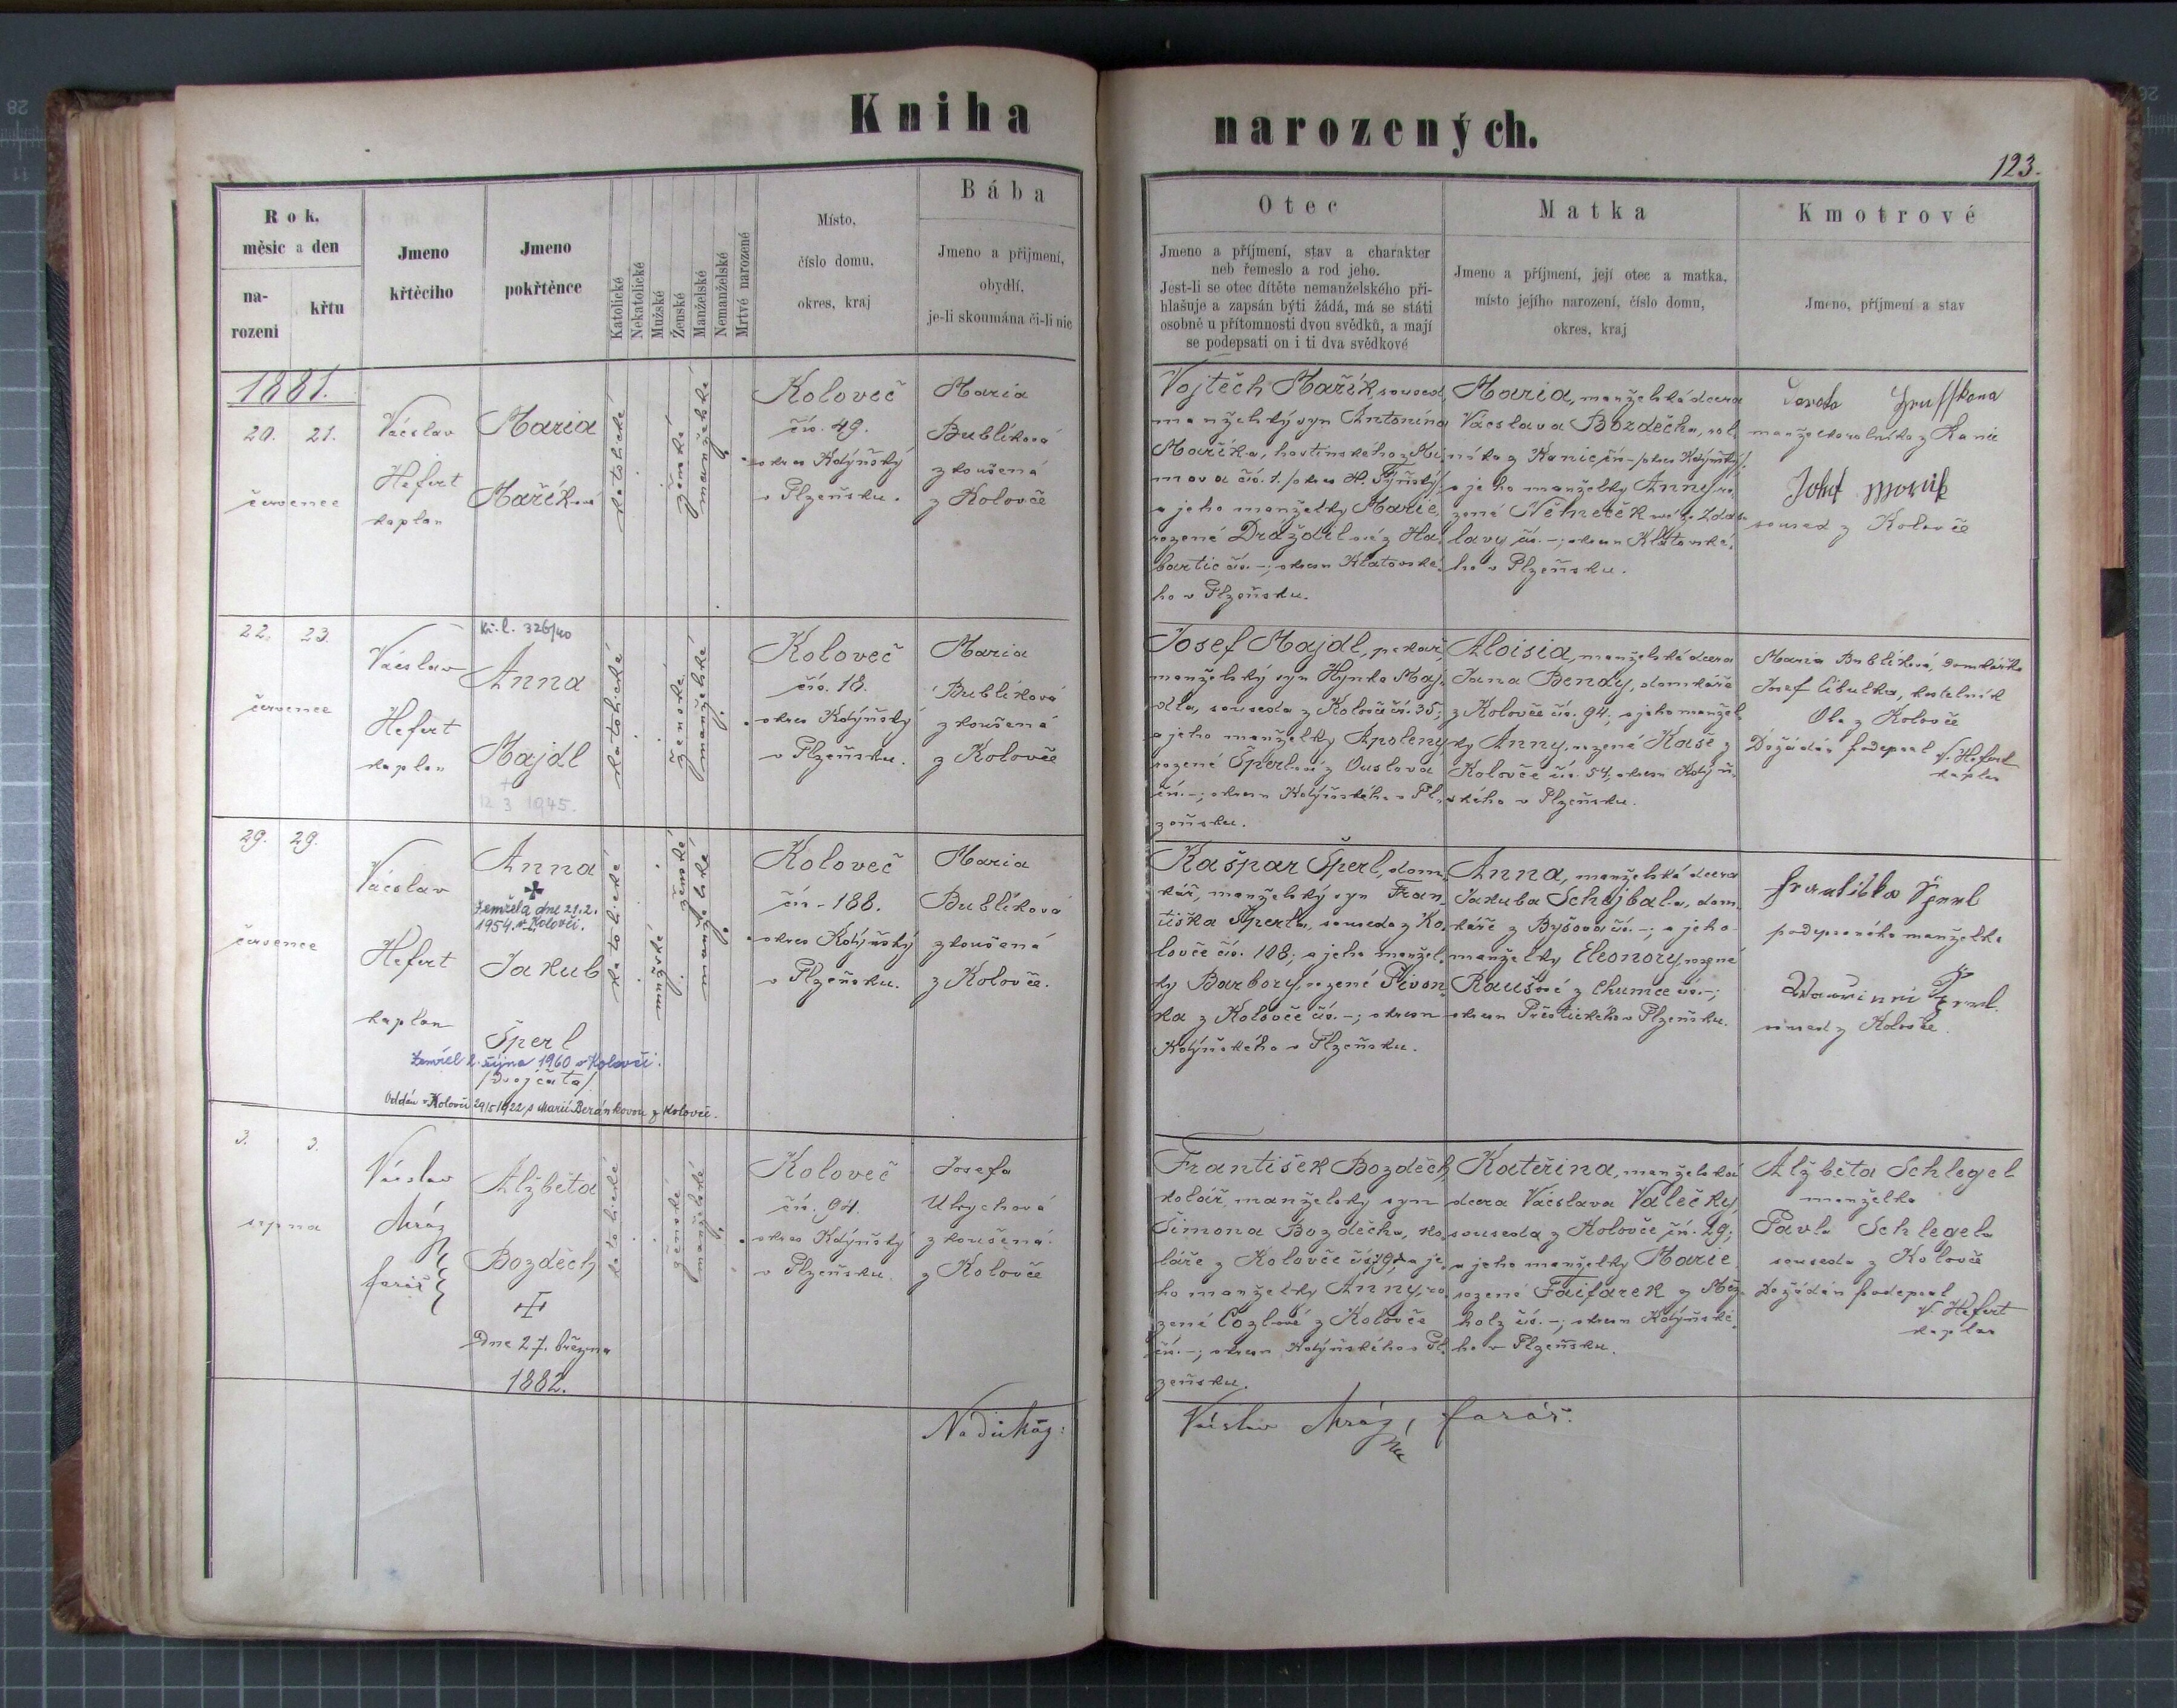 Kniha narozených.
123.
Rok, měsic a den
narození
křtu
Jmeno křtěcího
Jmeno pokřtěnce
Katolické
Nekatolické
Mužské
Ženské
Manželské
Nemanželské
Mrtvé narozené
Místo,
číslo domu,
okres, kraj
Bába
Jmeno a přijmení,
obydlí,
je-li skoumána či-li nic
Otec
Jmeno a příjmení, stav a charakter
neb řemeslo a rod jeho.
Jest-li se otec dítěte nemanželského při-
hlašuje a zapsán býti žádá, má se státi
osobně u přítomnosti dvou svědků, a mají
se podepsati on i ti dva svědkové
Matka
Jmeno a příjmení, její otec a matka,
místo jejího narození, číslo domu,
okres, kraj
Kmotrové
Jmeno, příjmení a stav
1881.
20. 21.
července
Václav
Hefert
kaplan
Maria
Maříkova
katolické
ženské
manželské
Koloveč
čís. 49.
okres Kdýňský
v Plzeňsku.
Maria
Bublíková
zkoušená
z Kolovče
Vojtěch Mařík, soused,
manželský syn Antonína
Maříka, hostinského z
čís. 1. /okres H. Týnský/
a jeho manželky Marie,
rozené Draždilové z Ha-
bartic čís. -; okresu Klatovské-
ho v Plzeňsku.
Maria, manželská dcera
Václava Bozděcha, rol-
níka z Kanic, čís - /okres Kdýňský/
a jeho manželky Anny, ro-
zené
lavy čís. -; okresu Klatovské-
ho v Plzeňsku.
manželka rolníka z Kanic
soused z Kolovče
22. 23.
července
Václav
Hefert
kaplan
Kř. l. 326/40
Anna
Majdl
+
12 3 1945.
katolické
ženské
manželské
Koloveč
čís. 18.
okres Kdýňský
v Plzeňsku.
Maria
Bublíková
zkoušená
z Kolovče
Josef Majdl, pekař,
manželský syn Hynka Maj-
dla, souseda z Kolovče čís. 35;
a jeho manželky Apoleny
rozené Šperlové z Ouslova
čís. -; okresu Kdýňského v Pl-
zeňsku.
Aloisia, manželská dcera
Jana Bendy, domkáře
z Kolovče čís. 94; a jeho manžel-
ky Anny, rozené Kaše z
Kolovče čís. 54; okresu Kdýň-
ského v Plzeňsku.
Maria Bublíková, domkářka
Josef Cibulka, kostelník
Oba z Kolovče
Dožádán podepsal V. Hefert
kaplan
29. 29.
července
Václav
Hefert
kaplan
Anna
✠
Zemřela dne 21.2.
1954 v Kolovči.
Jakub
Šperl
Zemřel 2. října 1960 v Kolovči.
/dvojčata/
Oddán v Kolovči 29/5 1922 s Marií Beránkovou z Kolovče.
katolické
mužské
ženské
manželské
Koloveč
čís - 188.
okres Kdýňský
v Plzeňsku.
Maria
Bublíková
zkoušená
z Kolovče.
Kašpar Šperl, dom-
kář, manželský syn Fran-
tiška Šperla, souseda z Ko-
lovče čís. 108; a jeho manžel-
ky Barbory, rozené Pivon-
ka z Kolovče čís. -; okresu
Kdýňského v Plzeňsku.
Anna, manželská dcera
Jakuba Schejbala, dom-
káře z Byšova čís. -; a jeho
manželky Eleonory, rozené
Raušové z Chumce čís. -;
okresu Přeštického v Plzeňsku.
Františka Šperl
podepsaného manželka
soused z Kolovče.
3. 3.
srpna
Václav
Mráz
farář
Alžběta
Bozděch
Dne 27. března
1882.
katolické
ženské
manželské
Koloveč
čís. 94.
okres Kdýňský
v Plzeňsku.
Josefa
Ulrychová
zkoušená
z Kolovče
František Bozděch,
kolář, manželský syn
Šimona Bozděcha, ko-
láře z Kolovče čís. a je-
ho manželky Anny, ro-
zené Cozlové z Kolovče
čís. -; okresu Kdýňského v Pl-
zeňsku.
Kateřina, manželská
dcera Václava Valečky,
souseda z Kolovče čís. 29;
a jeho manželky Marie
rozené Faifarek z Měz-
holz čís. -; okresu Kdýňské-
ho v Plzeňsku.
Alžběta Schlegel
manželka
Pavla Schlegela
souseda z Kolovče
Dožádán podepsal
V. Hefert
kaplan
Na důkaz:
Václav Mráz, farář.